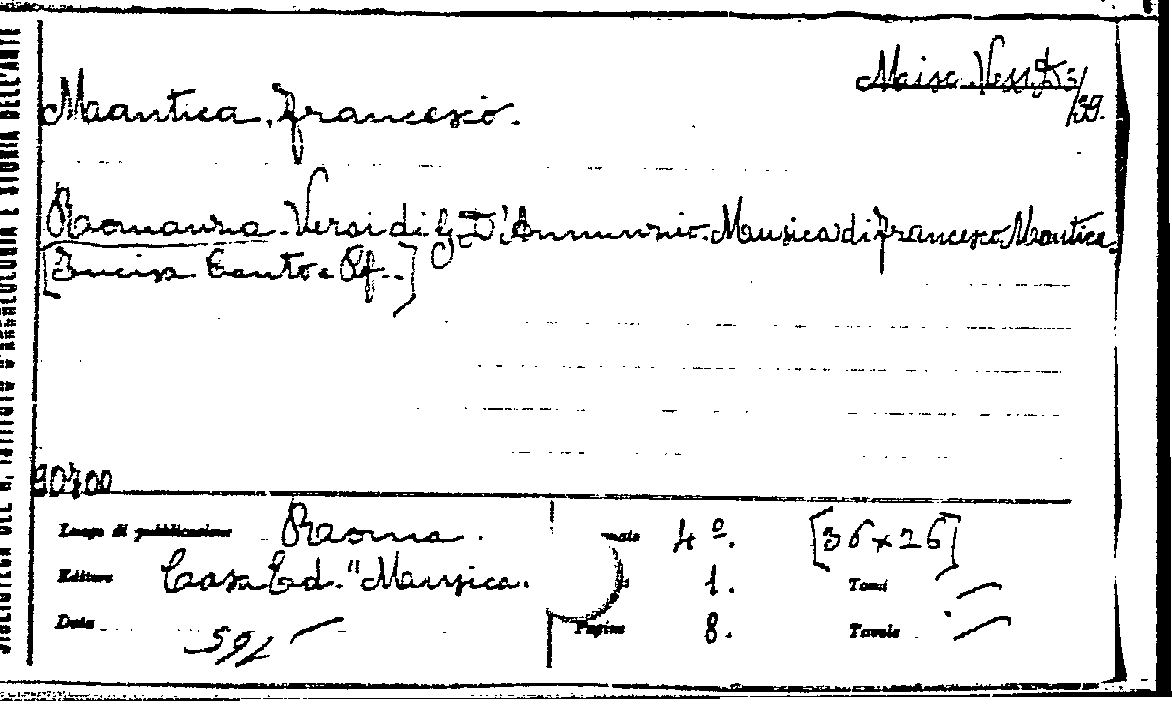 Misc. Vess.
/39.
Mantica, Francesco.
Romanza. Versi di G. D'Annunzio. Musica di Francesco Mantica.
[Incisa Canto e Pf..]
90700
Luogo di pubblicazione Roma. 4º. [36×26]
Editore Casa Ed. "Musica. 1. Tomi —
Data Pagine 8. Tavole —
BIBLIOTECA DEL R. ISTITUTO D'ARCHEOLOGIA E STORIA DELL'ARTE